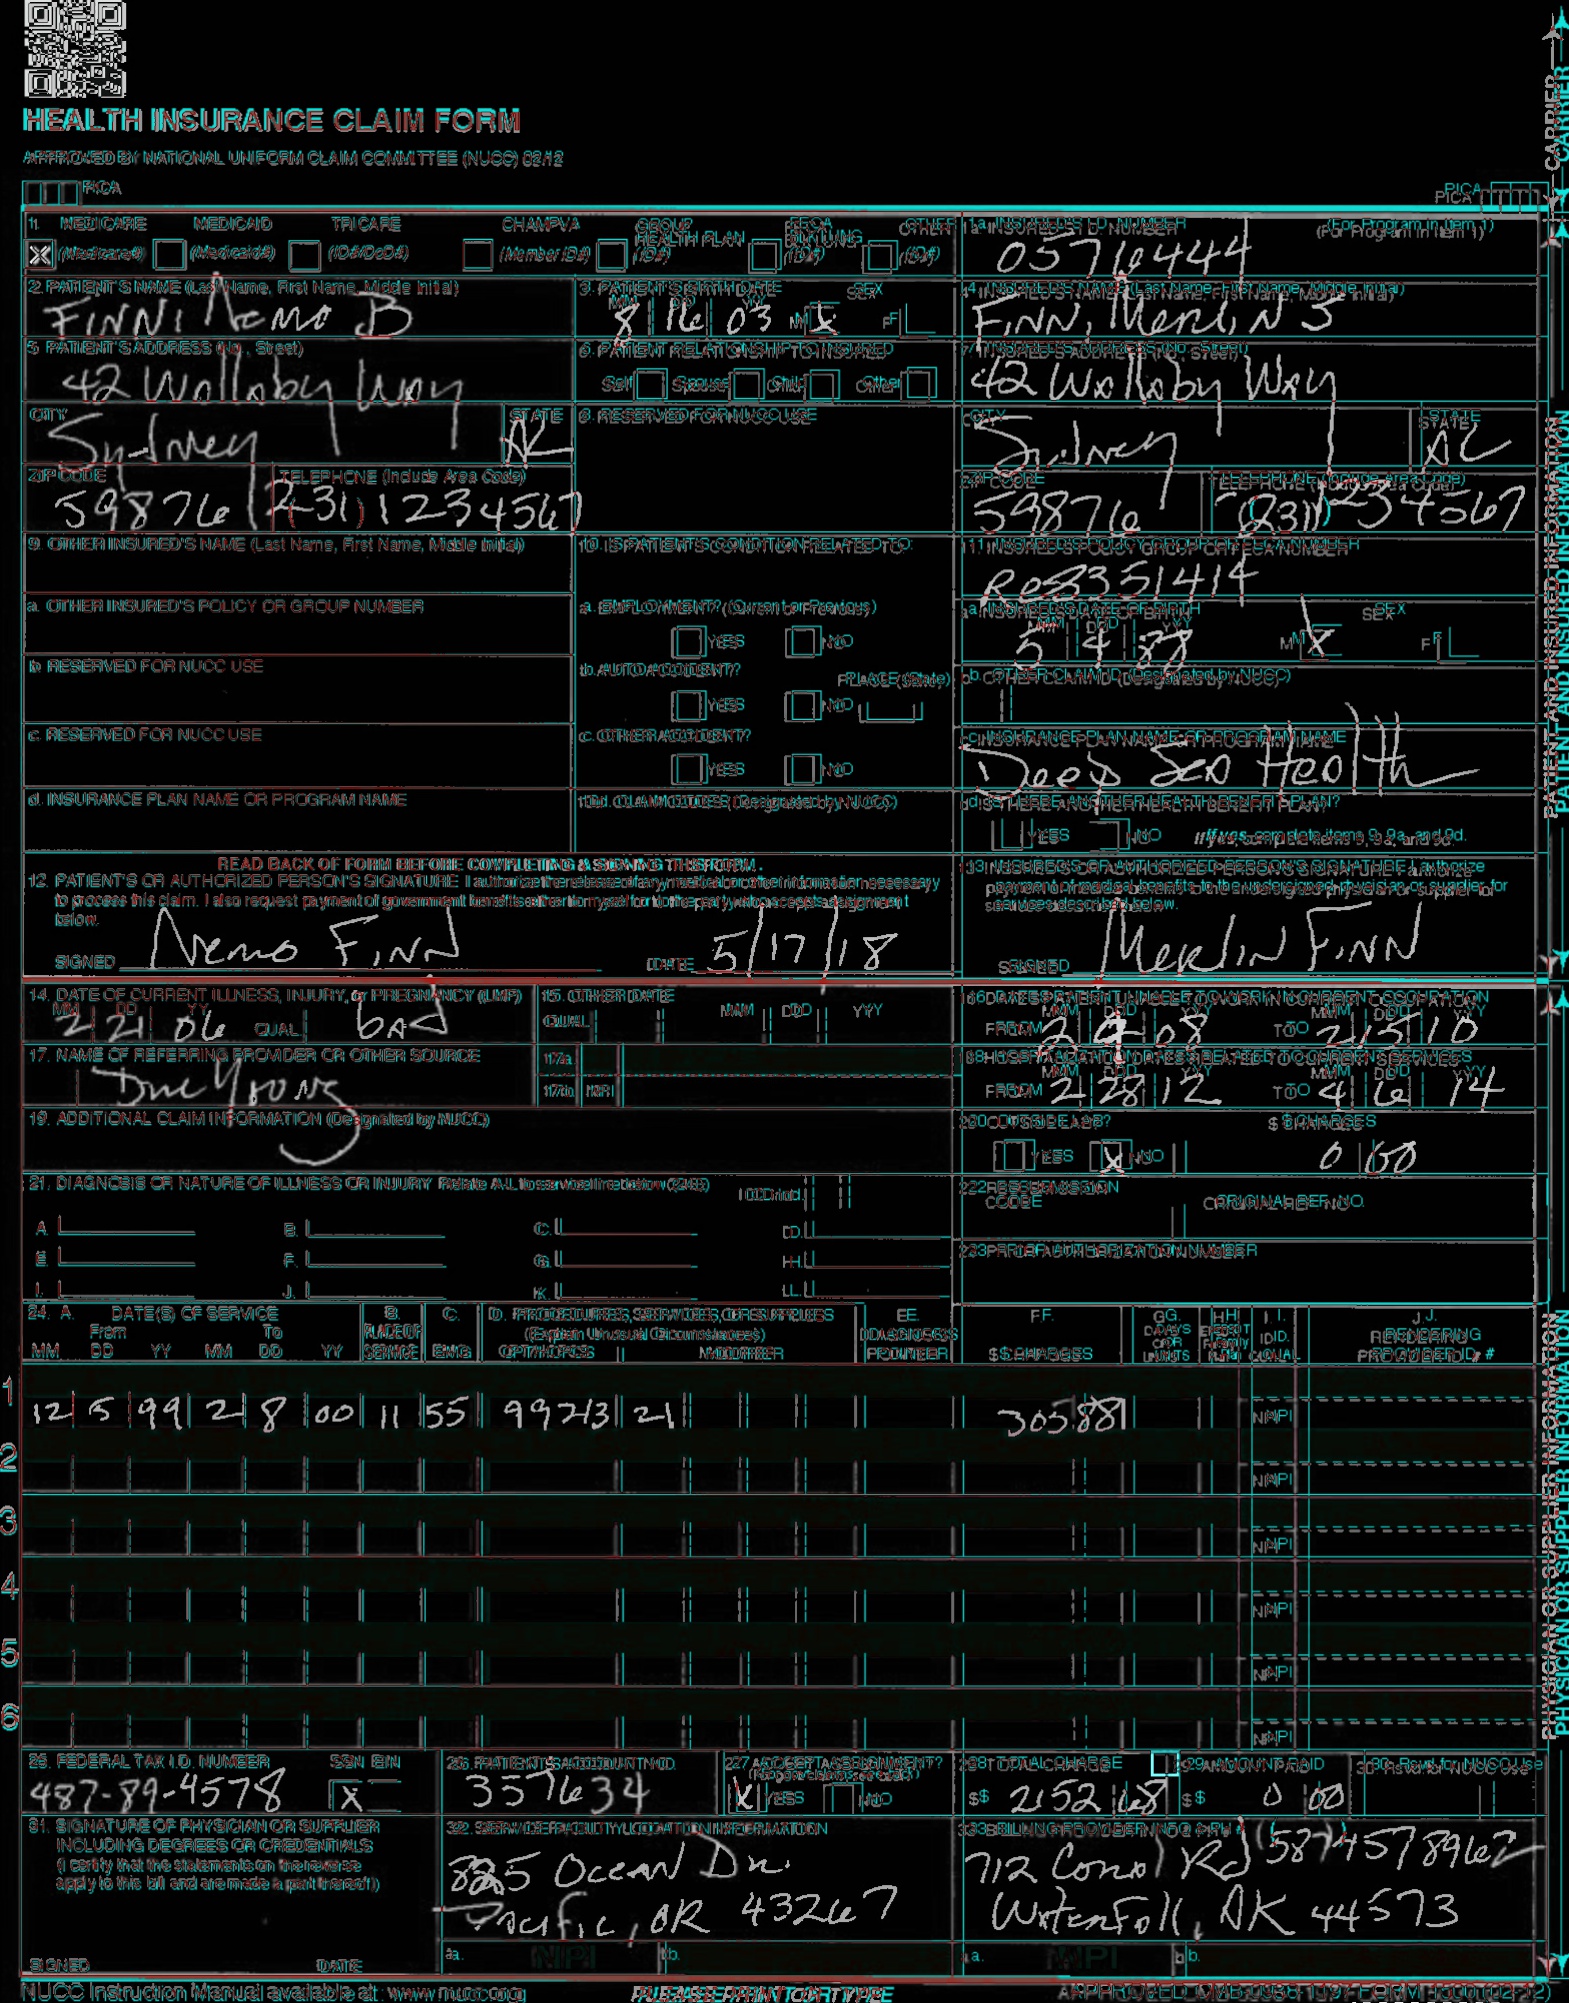 HEALTH INSURANCE CLAIM FORM
APPROVED BY NATIONAL UNIFORM CLAIM COMMITTEE (NUCC) 02/12
PICA
PICA
CARRIER
1. MEDICARE MEDICAID TRICARE CHAMPVA GROUP HEALTH PLAN FECA BLK LUNG OTHER
(Medicare#) (Medicaid#) (ID#/DoD#) (Member ID#) (ID#) (ID#) (ID#)
1a. INSURED'S I.D. NUMBER (For Program in Item 1)
05716444
2. PATIENT'S NAME (Last Name, First Name, Middle Initial)
FINN, Nemo B
3. PATIENT'S BIRTH DATE SEX
MM DD YY
8 16 03 M X F
4. INSURED'S NAME (Last Name, First Name, Middle Initial)
FINN, Merlin J
5. PATIENT'S ADDRESS (No., Street)
42 Wallaby Way
6. PATIENT RELATIONSHIP TO INSURED
Self Spouse Child Other
7. INSURED'S ADDRESS (No., Street)
42 Wallaby Way
CITY STATE
Sydney AK
8. RESERVED FOR NUCC USE
CITY STATE
Sydney
ZIP CODE TELEPHONE (Include Area Code)
59876 (231) 1234567
ZIP CODE TELEPHONE (Include Area Code)
59876 (231) 1234567
9. OTHER INSURED'S NAME (Last Name, First Name, Middle Initial)
10. IS PATIENT'S CONDITION RELATED TO:
11. INSURED'S POLICY GROUP OR FECA NUMBER
a. OTHER INSURED'S POLICY OR GROUP NUMBER
a. EMPLOYMENT? (Current or Previous)
YES NO
a. INSURED'S DATE OF BIRTH SEX
MM DD YY
5 4 88 M X F
b. RESERVED FOR NUCC USE
b. AUTO ACCIDENT? PLACE (State)
YES NO
b. OTHER CLAIM ID (Designated by NUCC)
c. RESERVED FOR NUCC USE
c. OTHER ACCIDENT?
YES NO
c. INSURANCE PLAN NAME OR PROGRAM NAME
Deep Sea Health
d. INSURANCE PLAN NAME OR PROGRAM NAME
10d. CLAIM CODES (Designated by NUCC)
d. IS THERE ANOTHER HEALTH BENEFIT PLAN?
YES NO If yes, complete items 9, 9a, and 9d.
PATIENT AND INSURED INFORMATION
READ BACK OF FORM BEFORE COMPLETING & SIGNING THIS FORM.
12. PATIENT'S OR AUTHORIZED PERSON'S SIGNATURE I authorize the release of any medical or other information necessary
to process this claim. I also request payment of government benefits either to myself or to the party who accepts assignment
below.
SIGNED Nemo Finn DATE 5/17/18
13. INSURED'S OR AUTHORIZED PERSON'S SIGNATURE I authorize
payment of medical benefits to the undersigned physician or supplier for
services described below.
SIGNED Merlin Finn
14. DATE OF CURRENT ILLNESS, INJURY, or PREGNANCY (LMP)
MM DD YY
2 21 06 QUAL. bad
15. OTHER DATE
QUAL. MM DD YY
16. DATES PATIENT UNABLE TO WORK IN CURRENT OCCUPATION
MM DD YY MM DD YY
FROM 2 08 TO 2 15 10
17. NAME OF REFERRING PROVIDER OR OTHER SOURCE
17a.
17b. NPI
18. HOSPITALIZATION DATES RELATED TO CURRENT SERVICES
MM DD YY MM DD YY
FROM 2 28 12 TO 4 6 14
19. ADDITIONAL CLAIM INFORMATION (Designated by NUCC)
20. OUTSIDE LAB? $ CHARGES
YES X NO 0 00
21. DIAGNOSIS OR NATURE OF ILLNESS OR INJURY Relate A-L to service line below (24E) ICD Ind.
A. B. C. D.
E. F. G. H.
I. J. K. L.
22. RESUBMISSION CODE ORIGINAL REF. NO.
23. PRIOR AUTHORIZATION NUMBER
24. A. DATE(S) OF SERVICE B. C. D. PROCEDURES, SERVICES, OR SUPPLIES E. F. G. H. I. J.
From To PLACE OF (Explain Unusual Circumstances) DIAGNOSIS DAYS OR UNITS ID. RENDERING
MM DD YY MM DD YY SERVICE EMG CPT/HCPCS MODIFIER POINTER $ CHARGES QUAL. PROVIDER ID. #
1 12 5 99 2 8 00 11 55 99213 21 305 88 NPI
2 NPI
3 NPI
4 NPI
5 NPI
6 NPI
PHYSICIAN OR SUPPLIER INFORMATION
25. FEDERAL TAX I.D. NUMBER SSN EIN
487-89-4578 X
26. PATIENT'S ACCOUNT NO.
357634
27. ACCEPT ASSIGNMENT?
X YES NO
28. TOTAL CHARGE
$ 2152 68
29. AMOUNT PAID
$ 0 00
30. Rsvd for NUCC Use
31. SIGNATURE OF PHYSICIAN OR SUPPLIER
INCLUDING DEGREES OR CREDENTIALS
(I certify that the statements on the reverse
apply to this bill and are made a part thereof.)
SIGNED DATE
32. SERVICE FACILITY LOCATION INFORMATION
Ocean Dr.
Pacific, 43267
a. NPI b.
33. BILLING PROVIDER INFO & PH #
(587) 4578962
712 Coral Rd
Waterfall, AK 44573
a. NPI b.
NUCC Instruction Manual available at: www.nucc.org
PLEASE PRINT OR TYPE